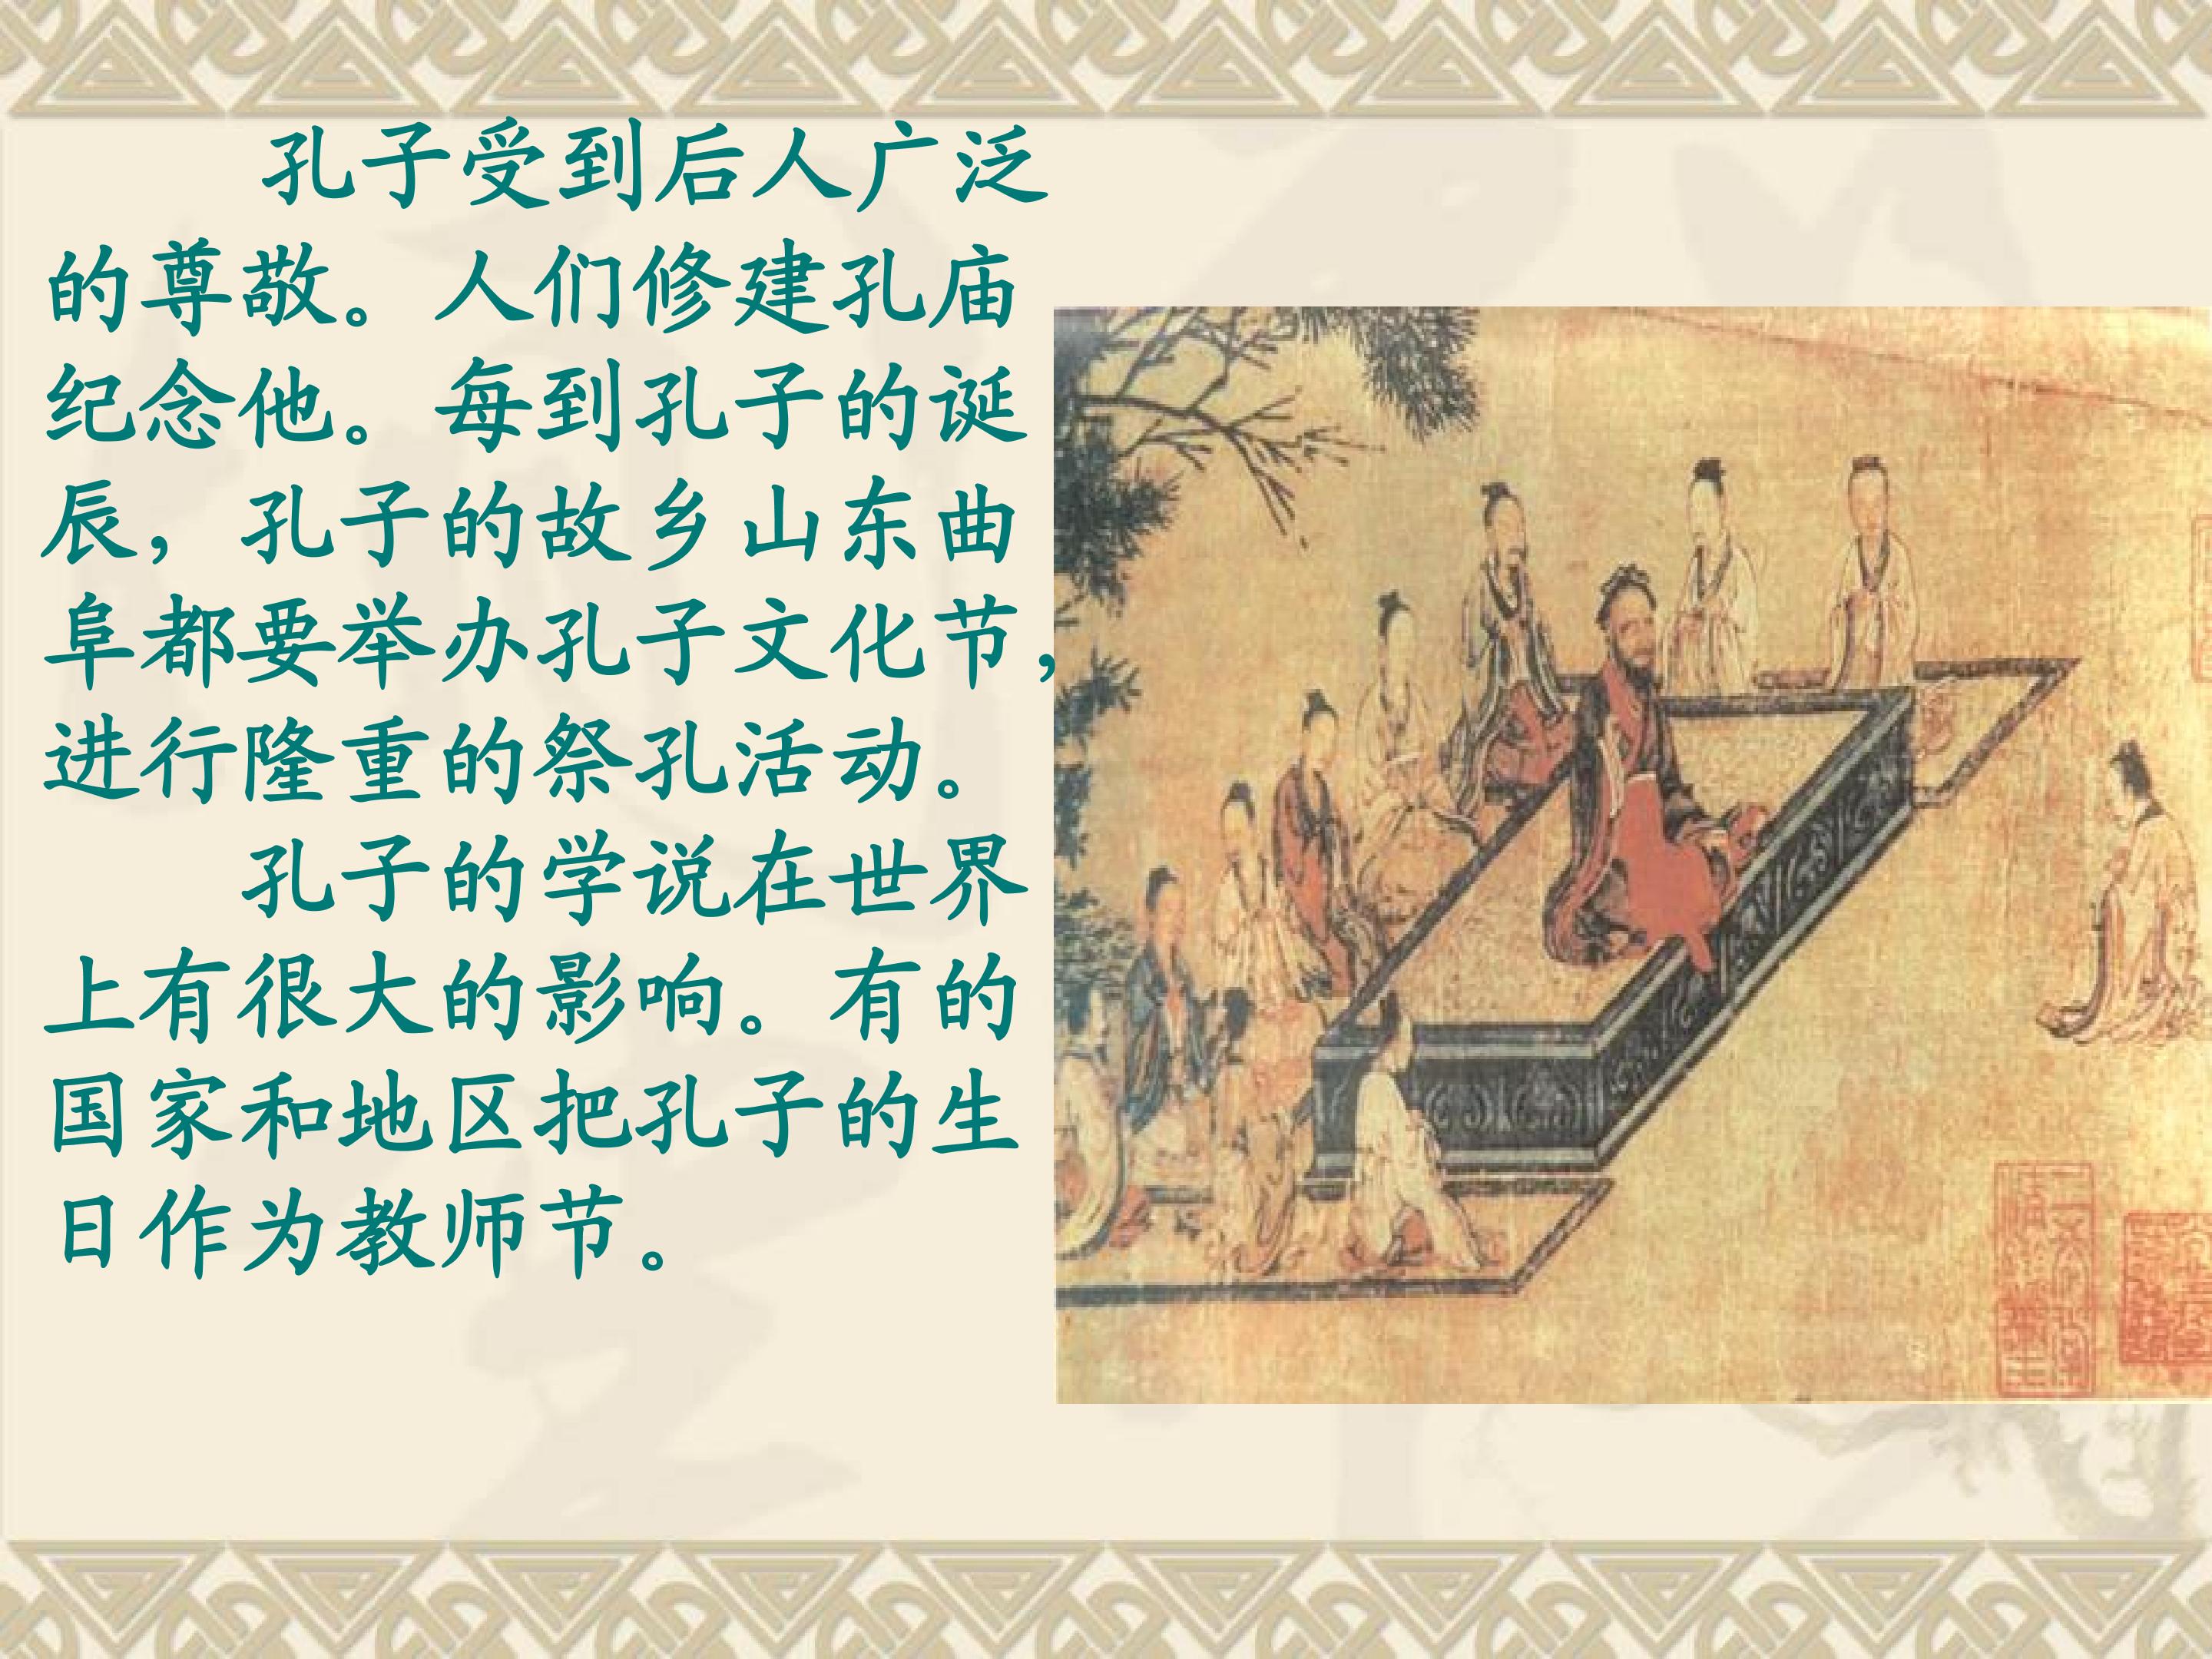 孔子受到后人广泛
的尊敬。人们修建孔庙
纪念他。每到孔子的诞
辰，孔子的故乡山东曲
阜都要举办孔子文化节，
进行隆重的祭孔活动。
孔子的学说在世界
上有很大的影响。有的
国家和地区把孔子的生
日作为教师节。